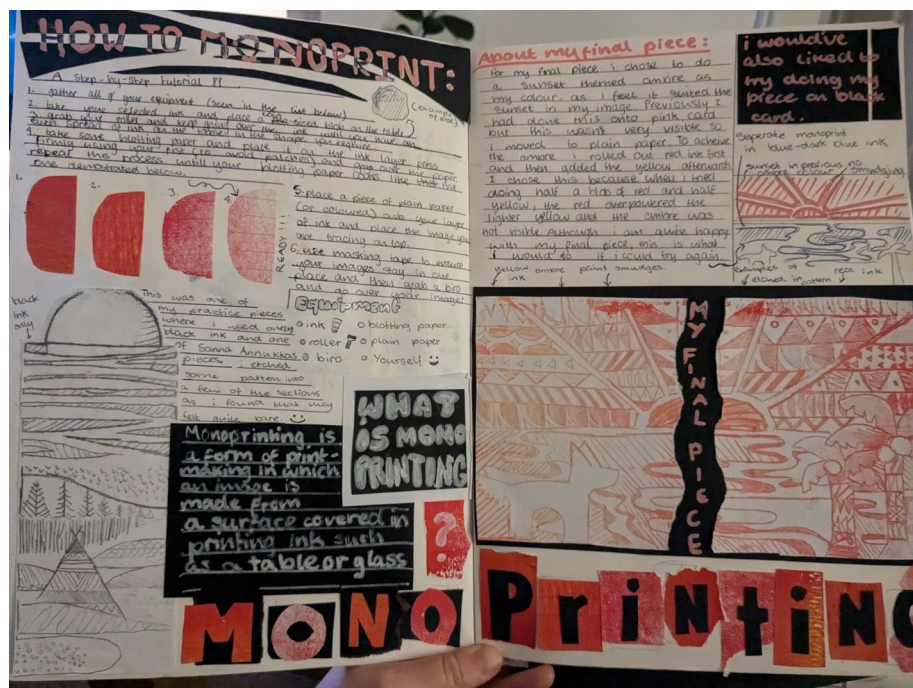 HOW TO MONOPRINT:
A step-by-step tutorial !!
1. gather all of your equipment (seen in the list below)
2. take your selected inks and place a pea-sized blob on the table
3. grab your roller and keep rolling over the ink until you have an
even spread of ink on the table in the shape you require.
4. take some blotting paper and place it on the ink layer, press
firmly using your fist (to avoid patches) all over the paper.
repeat this process untill your blotting paper looks like that the
one demonstrated below.
(example of size)
1.
2.
3.
4.
READY!!!!
5. place a piece of plain paper
(or coloured) onto your layer
of ink and place the image you
are tracing on top.
6. use masking tape to ensure
your images stay in one
place and then grab a biro
and go over your image!
Equipment
ink
blotting paper
roller
plain paper
biro
Yourself
black
ink
only
This was one of
my practice pieces
where i used only
black ink and one
of Sanna Annukkas
pieces i etched
some pattern into
a few of the sections
as i found that they
felt quite bare.
WHAT
IS MONO
PRINTING
?
Monoprinting is
a form of print-
making in which
an image is
made from
a surface covered in
printing ink such
as a table or glass
MONO
About my final piece:
for my final piece i chose to do
a sunset themed ombre as
my colour, as i feel it suited the
sunset in my image. Previously i
had done this onto pink card
but this wasn't very visible so
i moved to plain paper. To achieve
the ombre i rolled out red ink first
and then added the yellow afterwards
I chose this because when i tried
doing half a blob of red and half
yellow, the red overpowered the
lighter yellow and the ombre was
not visible. Although i am quite happy
with my final piece, this is what
i would do if i could try again.
i would've
also liked to
try doing my
piece on black
card.
seperate monoprint
in blue-dark blue ink
sunset in previous no
ombre colour smudging
examples of
etched in pattern.
real ink
yellow ombre
ink
paint smudges.
MY FINAL PIECE
PrintiNG